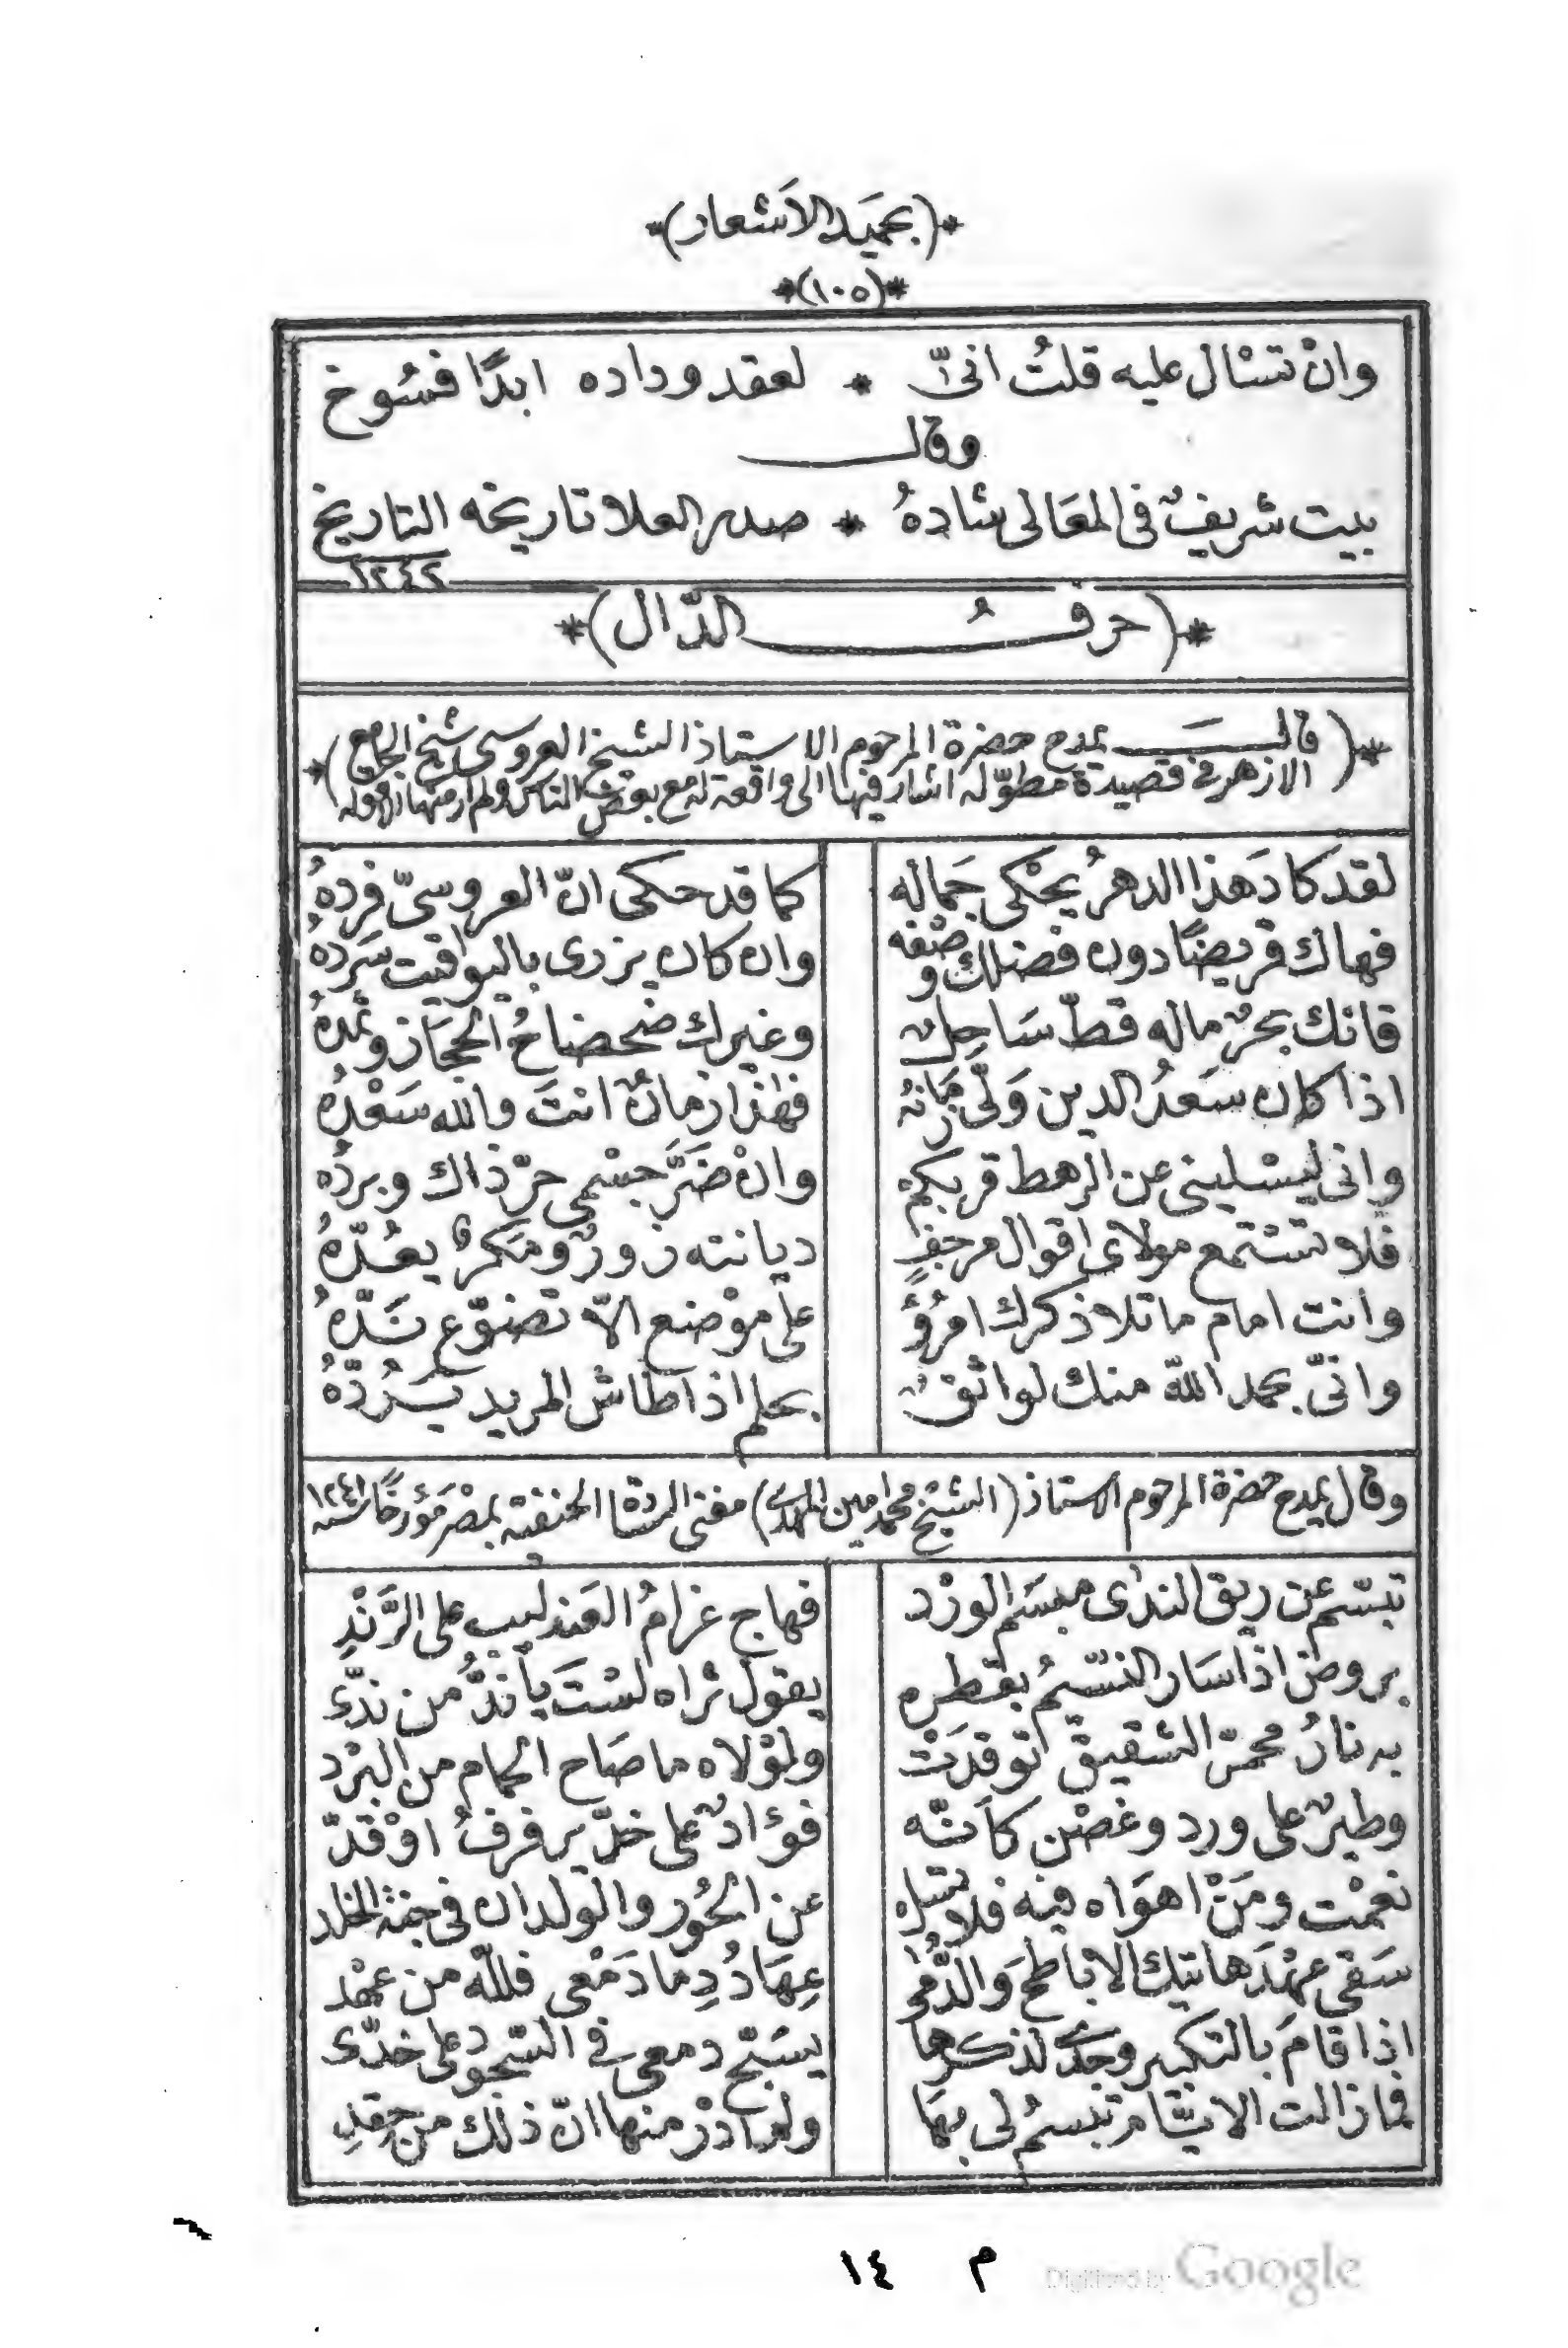 *(بحميد الاشعار)*
*(١٠٥)*
وانْ تسْال عليه قلتُ انىّ * لعقد وداده ابدًا فسُوخ
وقال
بيت شريفٌ فى المعَالى شادهُ * صدر العلا تاريخه التاريخ
١٢٤٢
*(حرفُ الدّال)*
*(قال يمدح حضرة المرحوم الاستاذ الشيخ العروسى شيخ الجامع
الازهر فى قصيدة مطوّله اشار فيها الى واقعة له مع بعض الناس ولم ار منها الا قوله)*
لقد كادَ هذا الدهرُ يحْكى جَماله كما قد حكى انّ العروسىّ فردهُ
فهاك قريضًا دون فضلك وصْفه وان كان يزرى باليواقيت سَردهُ
فانك بحرٌ ماله قطّ سَاحِلٌ وغيرك ضحضاحُ الحجَاز وثمدهُ
اذا كان سَعدُ الدين وَلّى زمَانهُ فهٰذا زمانٌ انتَ والله سَعْدهُ
وانى ليسْلينى عن الرهط قربكمْ وانْ ضَرَّ جسْمى حرّ ذاك وبردُه
فلا تسْتمع مولاى اقوال مرجفٍ ديانته زورٌ ومَكرٌ يعُدّهُ
وانت امام ما تلا ذكرك امرُؤٌ على موْضع الا تضوّع نَدّهُ
وانىّ بحمد اللّه منك لواثقٌ بحلم اذا طاش المريد يَرُدّهُ
وقال يمدح حضرة المرحوم الاستاذ (الشيخ محمد امين المهدى) مفتى السادة الحنفية بمصْر مؤرخًا سنة ١٢٤١
تبسّم عن ريق الندٰى مبسَم الورْد فهاج غرامُ العَندليب على الرَّنْدِ
بروض اذا سَار النسّيمُ بقطره يقول ثراه لسْتَ يا نَدُّ من ندّى
به نارُ محمرّ الشقيق توقدَتْ ولوْلاه ما صَاح الحمام من البرْد
وطيرٌ على ورد وغصْن كاَنّه فؤادٌ على خدّ يرفرفُ اوْ قدّ
نعمْت ومَنْ اهوَاه فيه فلا تسَل عن الحُور والولدان فى جنة الخلد
سَقى عهْدَ هاتيك الاباطح وَالدُّمى عِهَادُ دِما دَمْعى فللّه من عهْد
اذا قامَ بالتكبير وجْدٌ لذكرها يسَبّح دمعى فى السّجود على خدّى
فما زالت الايّام تبسمُ لى بهَا ولم ادرْ منها انّ ذلك من حِقدِ
م ١٤
Digitized by Google